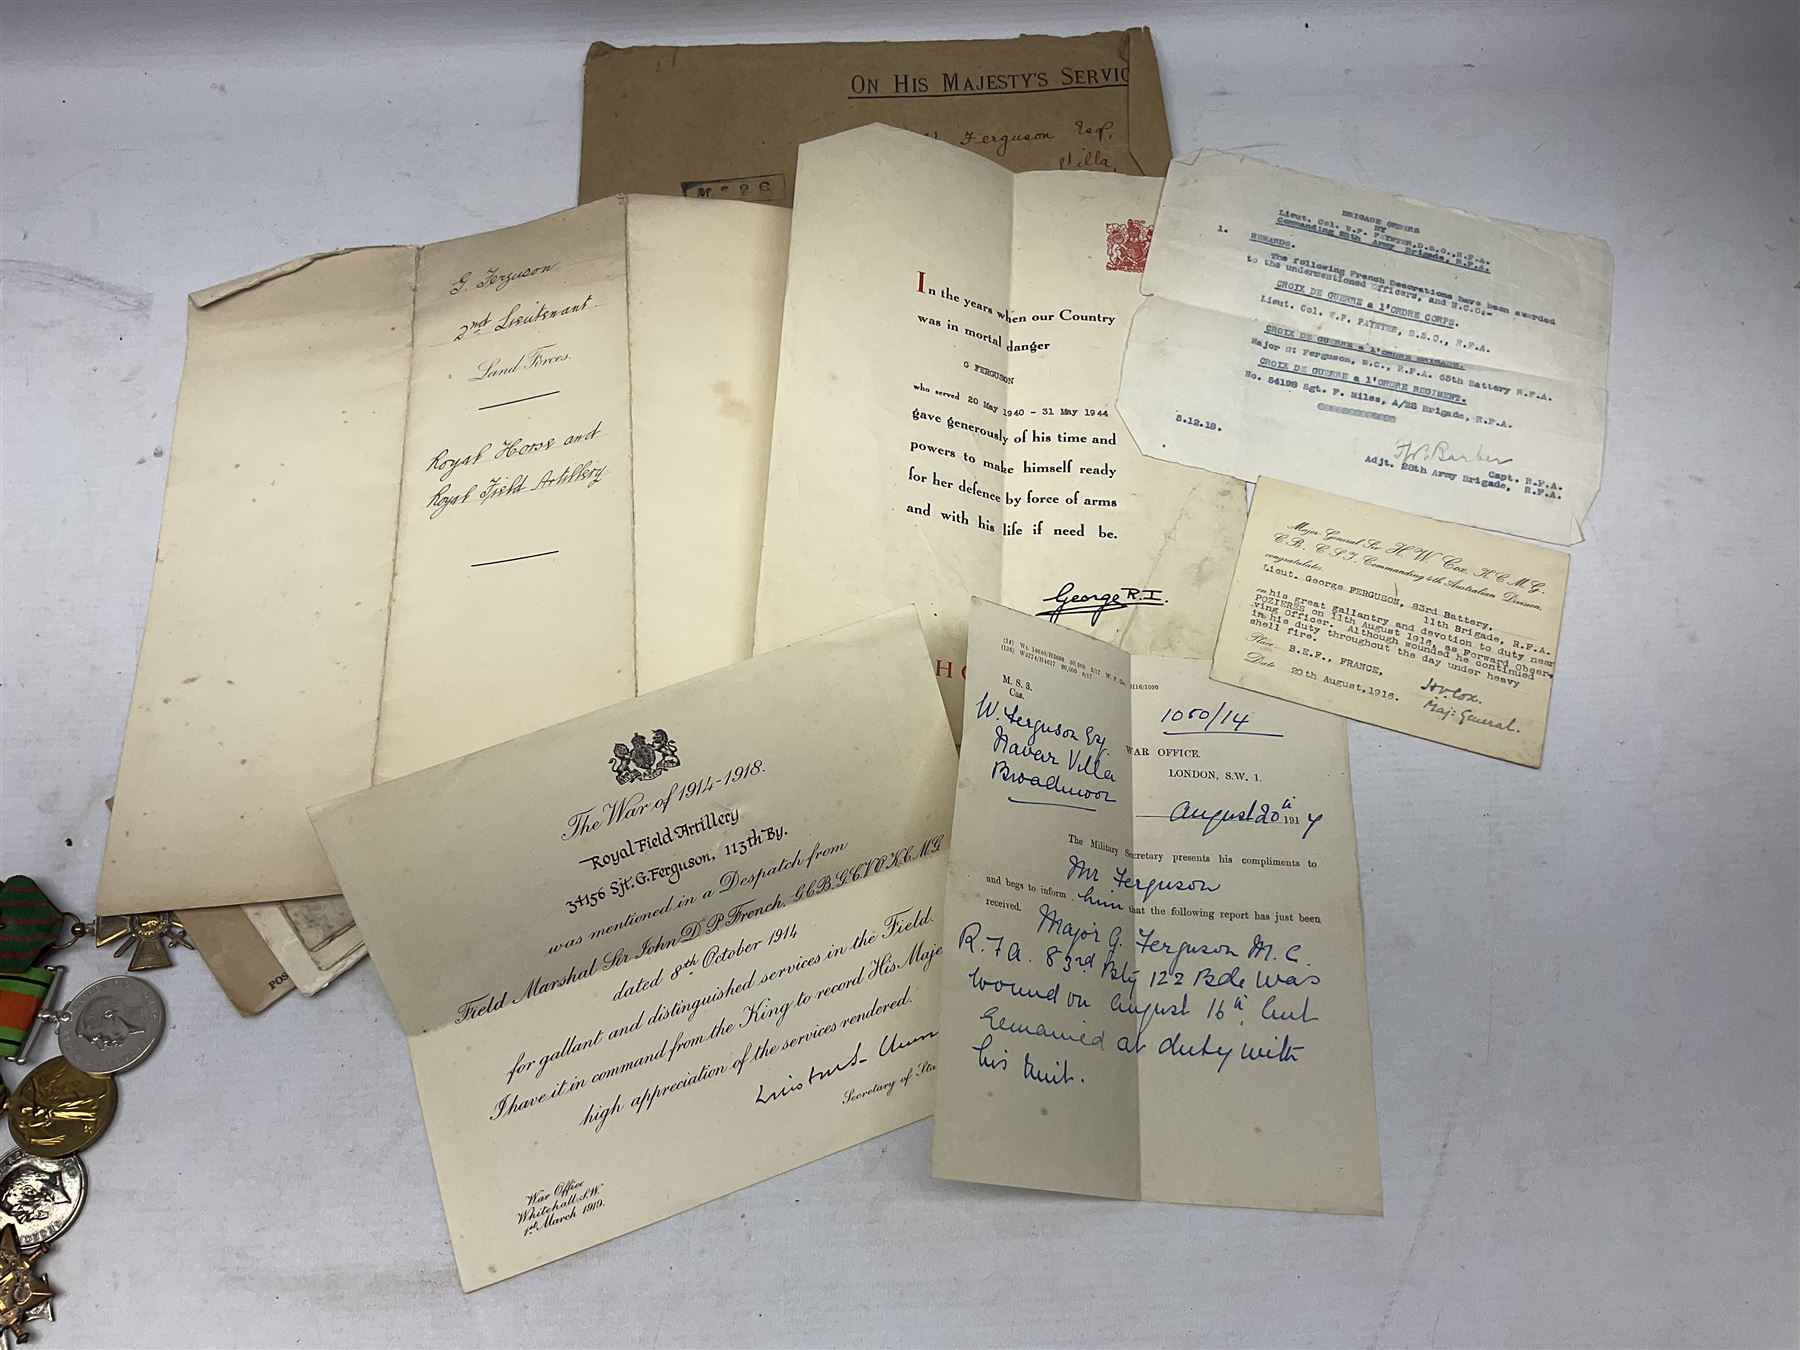 ON HIS MAJESTY'S SERVIC
Ferguson Esq,
Villa
G. Ferguson
2nd Lieutenant
Land Forces.
Royal Horse and
Royal Field Artillery.
In the years when our Country
was in mortal danger
G FERGUSON
who served 20 May 1940 - 31 May 1944
gave generously of his time and
powers to make himself ready
for her defence by force of arms
and with his life if need be.
George R.I.
BRIGADE ORDERS
BY
Lieut. Col. W.F. PAYNTER, D.S.O., R.F.A.
Commanding 28th Army Brigade, R.F.A.
1. REWARDS.
The following French Decorations have been awarded
to the undermentioned Officers, and N.C.O:-
CROIX DE GUERRE a l'ORDRE CORPS.
Lieut. Col. W.F. PAYNTER, D.S.O., R.F.A.
CROIX DE GUERRE a l'ORDRE BRIGADE.
Major G: Ferguson, M.C., R.F.A. 65th Battery R.F.A.
CROIX DE GUERRE a l'ORDRE REGIMENT.
No. 54198 Sgt. F. Miles, A/28 Brigade, R.F.A.
5.12.18.
Barber
Capt. R.F.A.
Adjt. 28th Army Brigade, R.F.A.
Major-General Sir H. W. Cox, K C M G.
C B. C S I. Commanding 4th Australian Division,
congratulates
Lieut. George FERGUSON, 83rd Battery,
11th Brigade, R.F.A.
on his great gallantry and devotion to duty near
POZIERES on 11th August 1916, as Forward Obser-
ving Officer. Although wounded he continued
in his duty throughout the day under heavy
shell fire.
Place B.E.F., FRANCE,
Date 20th August, 1916.
H.V. Cox
Maj: General.
The War of 1914-1918.
Royal Field Artillery
34156 Sjt. G. Ferguson, 113th By.
was mentioned in a Despatch from
Field Marshal Sir John D. P. French, G.C.B. G.C.V.O. K.C.M.G
dated 8th October 1914
for gallant and distinguished services in the Field.
I have it in command from the King to record His Maje
high appreciation of the services rendered.
Secretary of Sta
War Office
Whitehall, S.W.
1st March 1919.
M. S. 3.
Cas.
1050/14
W. Ferguson Esq.
Navar Villa
Broadmoor
WAR OFFICE.
LONDON, S.W. 1.
August 20th 1917
The Military Secretary presents his compliments to
Mr Ferguson
and begs to inform him that the following report has just been
received.
Major G. Ferguson M.C.
R.F.A. 83rd Bty 122 Bde was
wound on August 16th but
remained at duty with
his unit.
POS